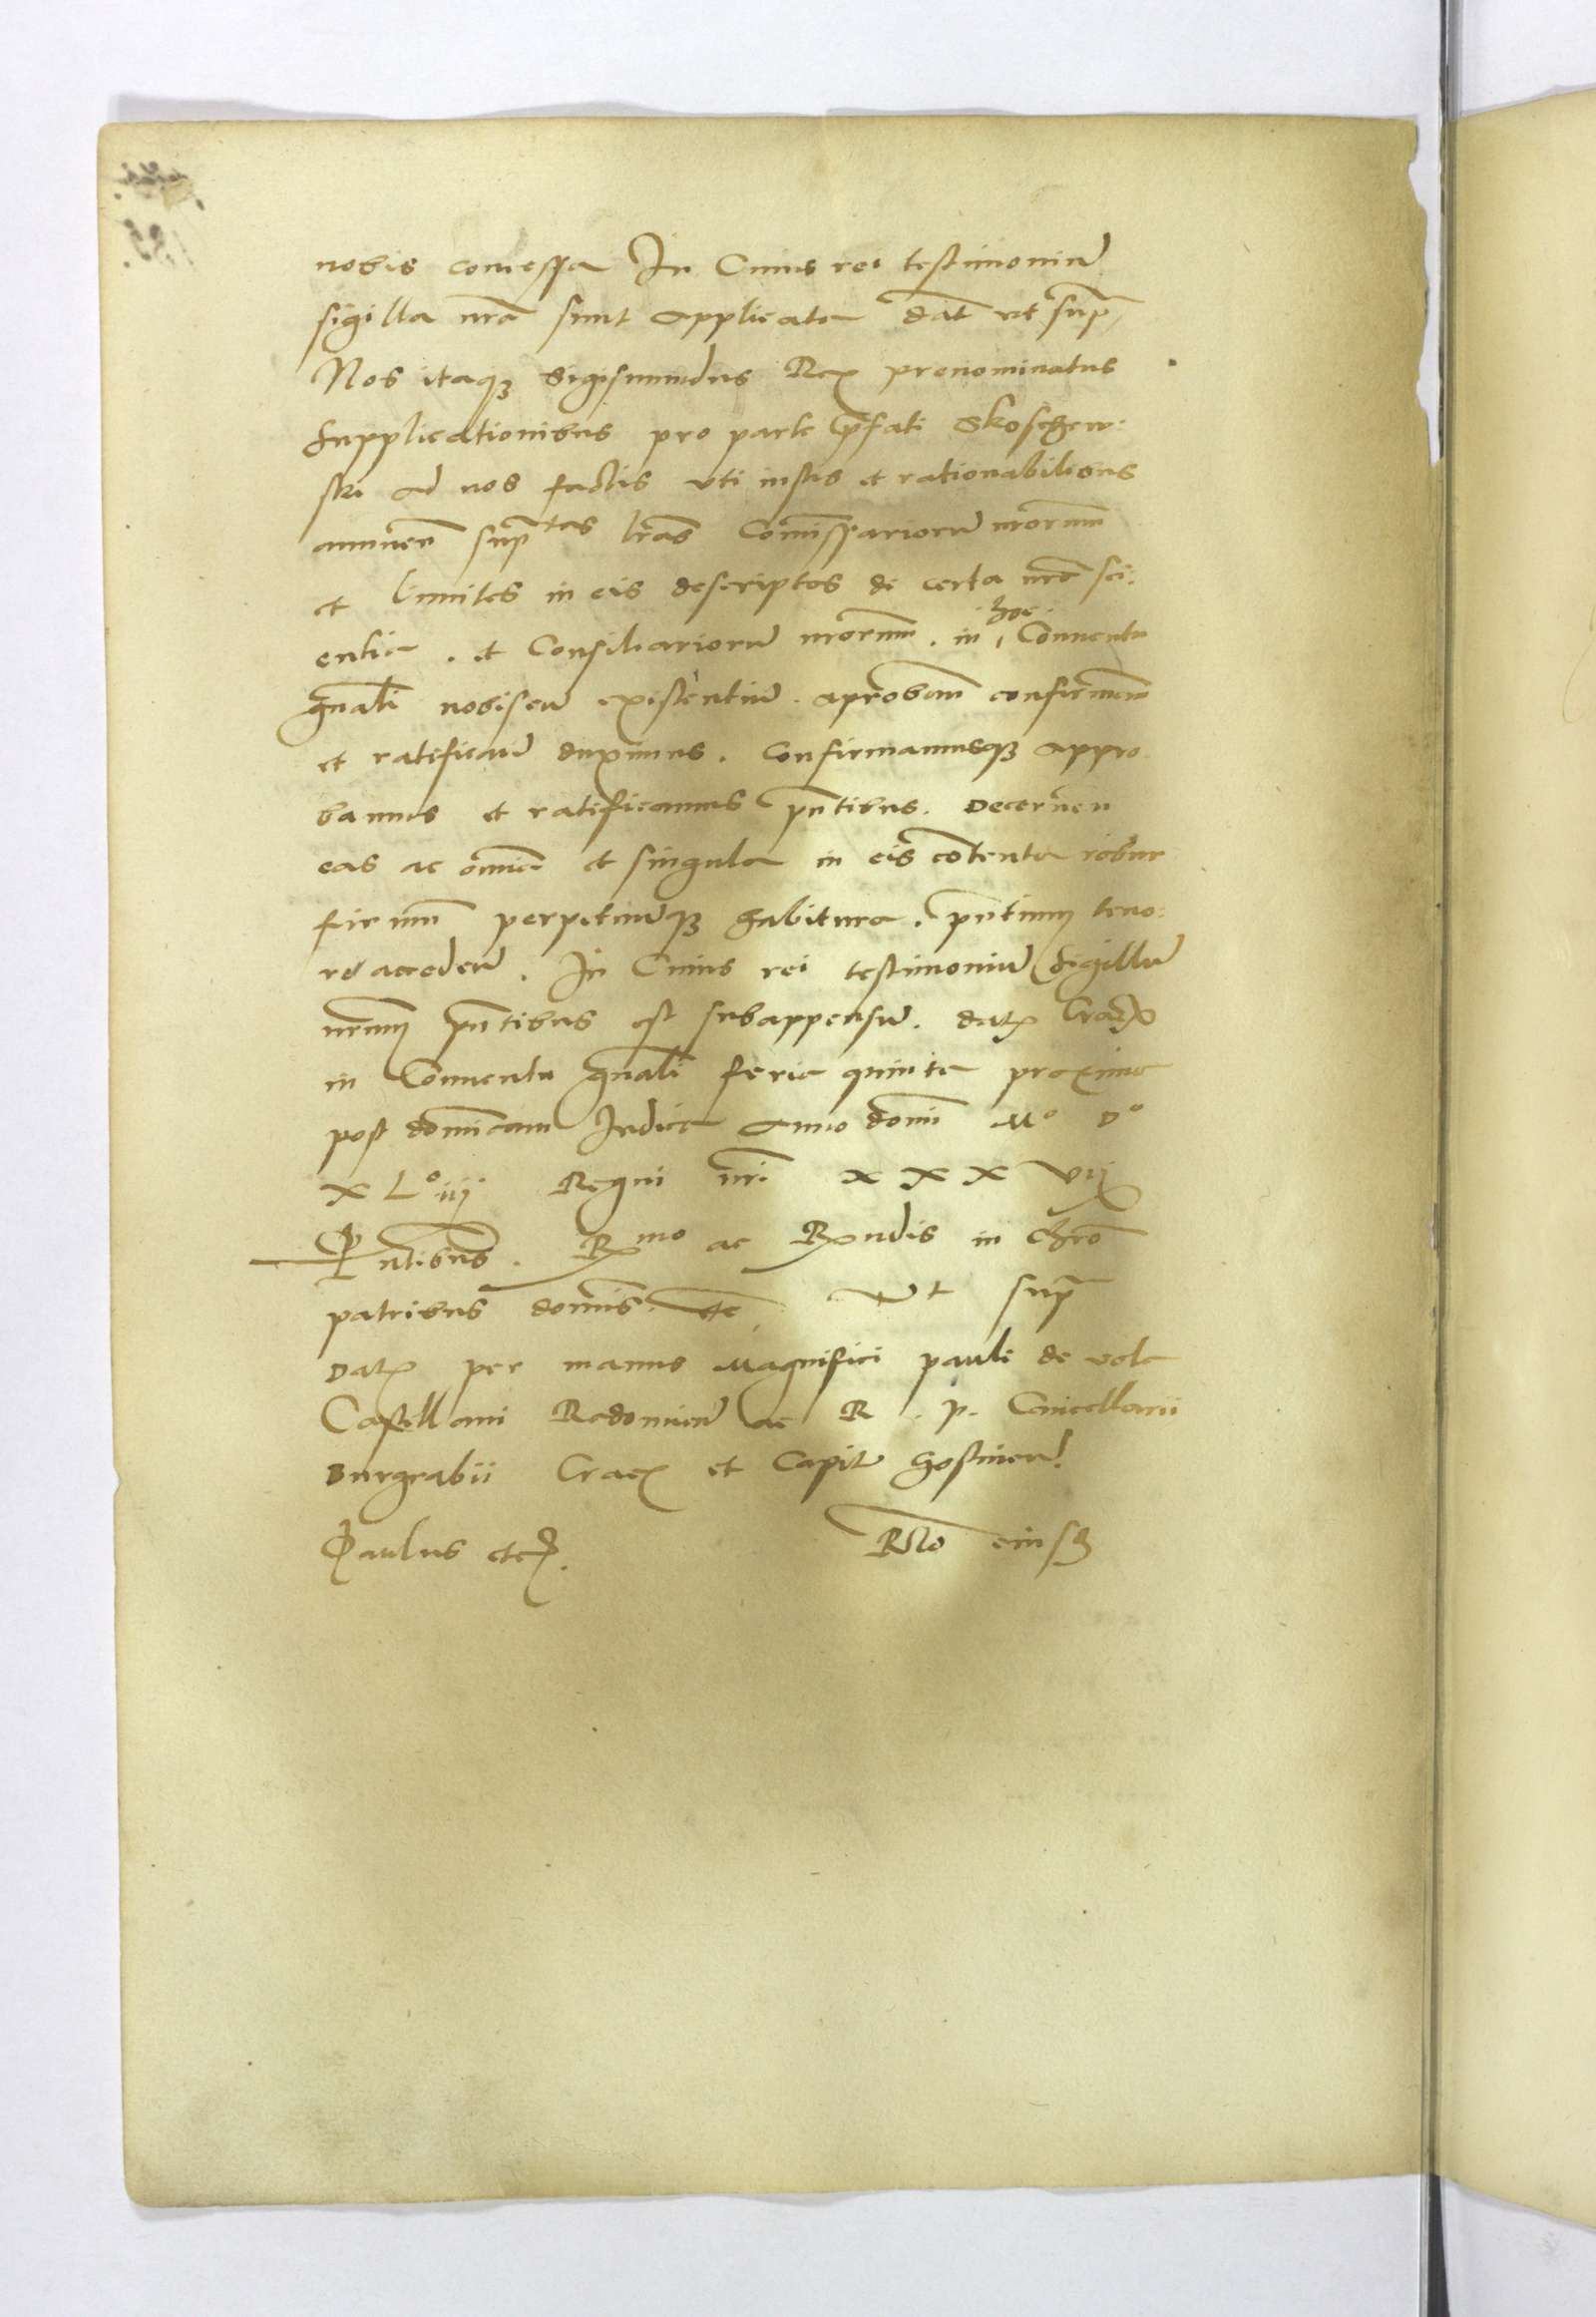 nobis comessa In Cuius rei testimoniũ
sigilla nr̃a sunt applicata dat̃ ut supr̃
Nos itaqꝫ Sigismundus Rex prenominatus
supplicationibus pro parte p̃fati Skoschew:
ski ad nos factis vti iustis et rationabilibus
annuen̄ supr̃tas lr̃as Com̃issariorũ nr̃orum
et limites in eis descriptos de certa nr̃a sci:
entia . et Consiliariorũ nr̃orum . in hoc Conuentu
gñali nobiscũ existentiũ . aproban̄ confirman̄
et ratifican̄d duximus . Confirmamusqꝫ appro
bamus et ratificamus p̃ntibus . Decernen̄
eas ac om̃ia et singula in eis contenta robur
firmũ perpetuũqꝫ habitura . p̃ntium teno:
re accedeñ . In Cuius rei testimoniũ sigillũ
nr̃um p̃ntibus est subappensũ . datꝫ Cracꝫ
in Conuentu gñali feria quinta proxima
post dom̃icam Iudica anno dom̃i Mº Dº
XLº iij. Regni nr̃i. XXX vij
P̃ntibus . Rmo ac Rndis in chr̃o
patribus dom̃is etc Vt supr̃
Datꝫ per manus Magnifici Pauli de vola
Castellani Radomieñ ac R . p . Cancellarii
Burgrabii Cracꝫ et Capit̃ Gostineñ.
Paulus etc. Rl̃o eiusꝫ